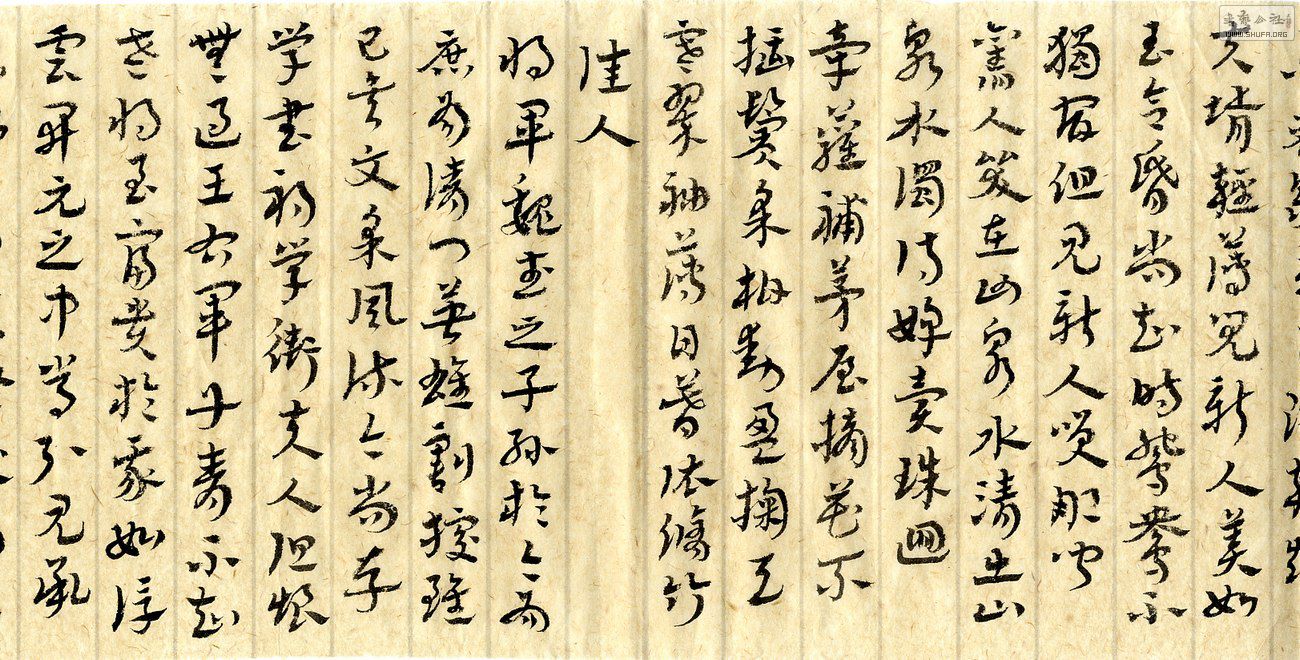 夫壻輕薄兒新人美如
玉合昏尚知時鴛鴦不
獨宿但見新人笑那聞
舊人哭在山泉水清出山
泉水濁侍婢賣珠迴
牽蘿補茅屋摘花不
插鬢采柏動盈掬天
寒翠袖薄日暮依脩竹
佳人
將軍魏武之子孫於今為
庶為清門英雄割據雖
已矣文采風流今尚存
学書初学衛夫人但恨
無過王右軍丹青不知
老將至富貴於我如浮
雲開元之中常引見承
WWW.SHUFA.ORG